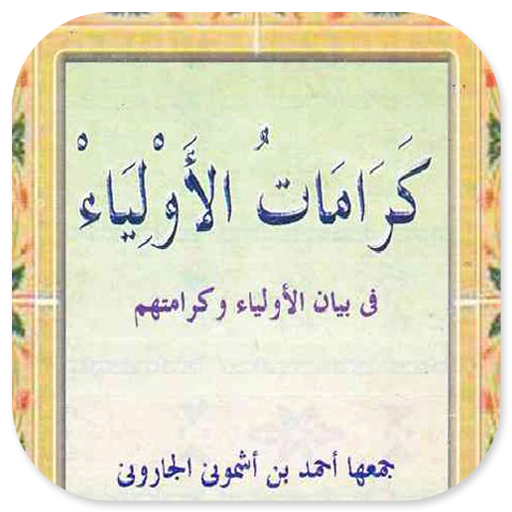 كَرَامَاتُ الأَوْلِيَاءْ
فى بيان الأولياء وكرامتهم
جمعها أحمد بن أشمونى الجارونى